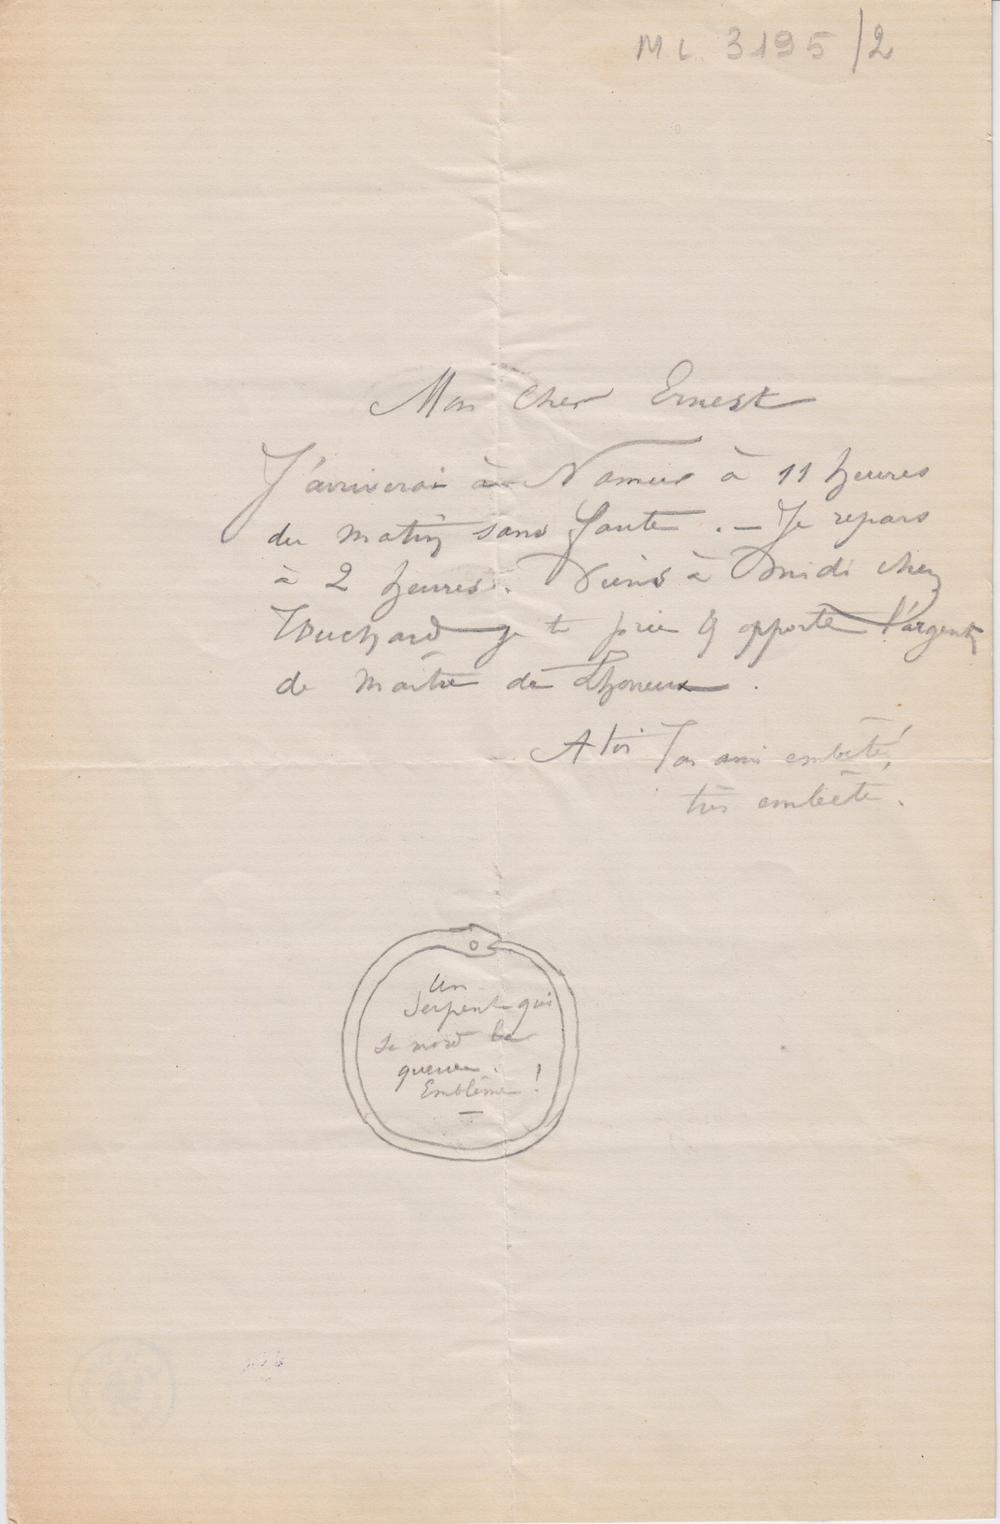 M L 3195/2
Mon Cher Ernest
J'arriverai à Namur à 11 heures
du matin sans faute. – Je repars
à 2 heures. Viens à midi chez
je te prie & apporte l'argent
de maître de Lhoneux.
A toi Ton ami embêté,
très embêté.
Un
Serpent qui
se mord la
queue.
Emblême !